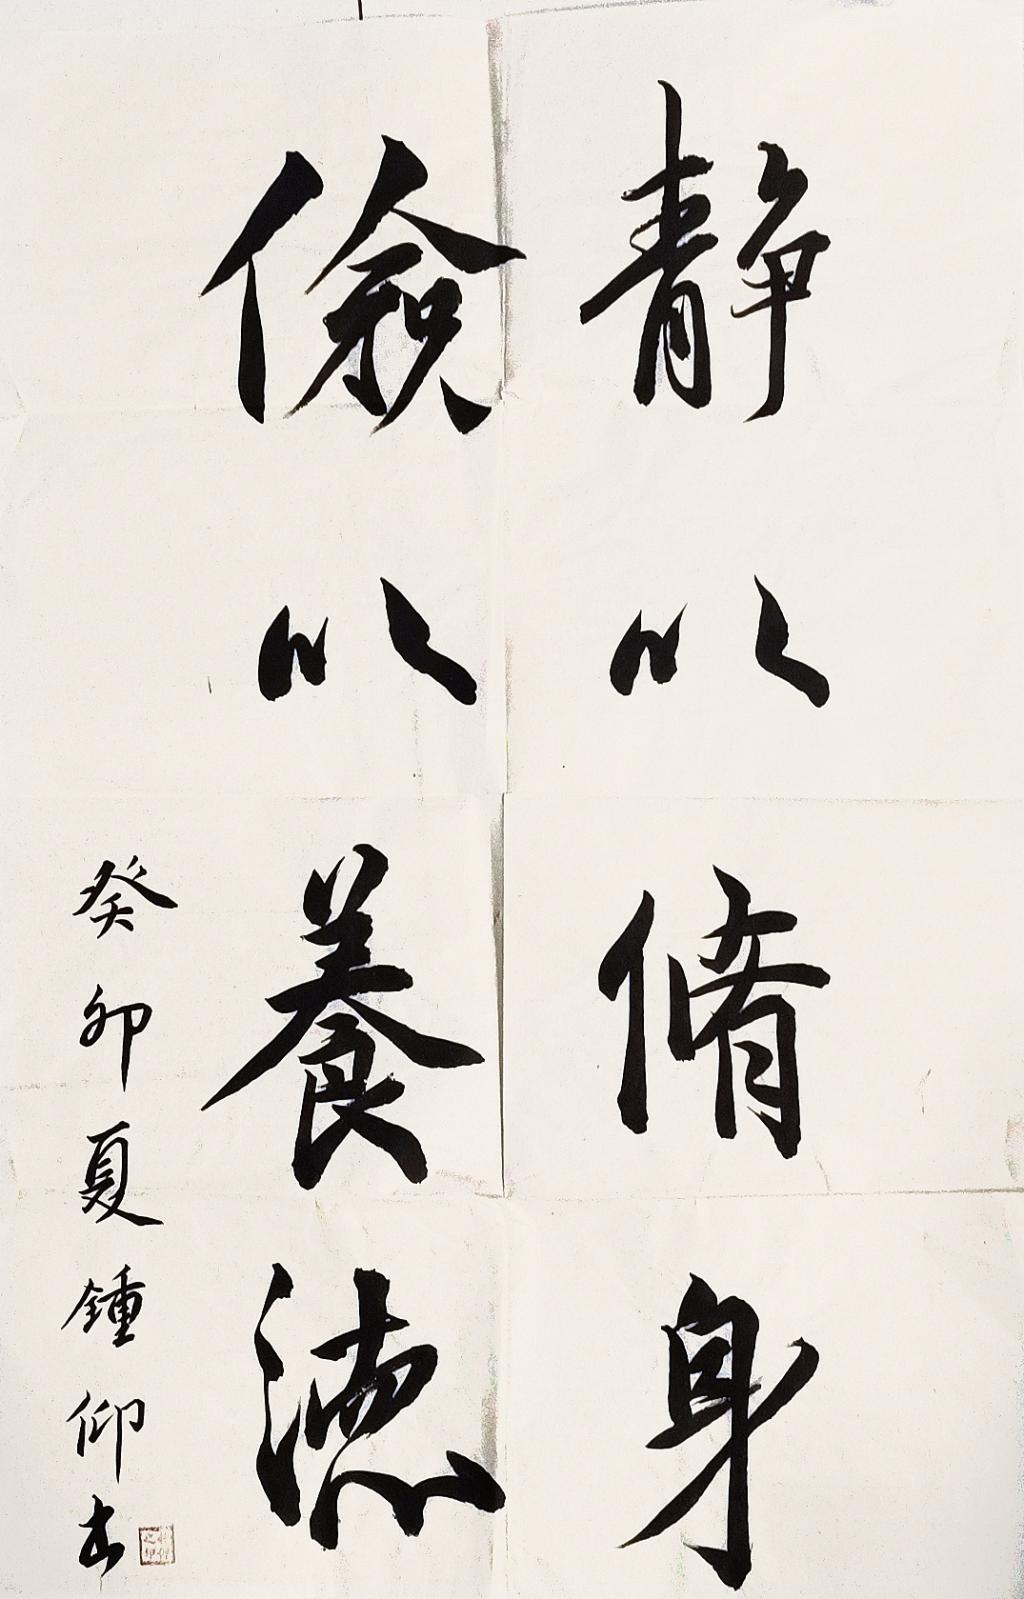 静以脩身
儉以養德
癸卯夏鍾仰书